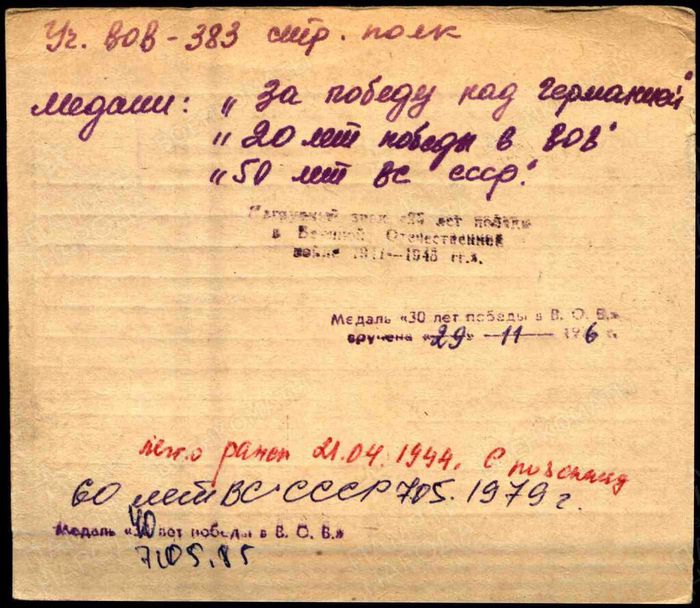 Уч. ВОВ - 383 стр. полк
Медали: „За победу над Германией"
„20 лет победы в ВОВ"
„50 лет ВС СССР."
Нагрудный знак «25 лет победы
в Великой Отечественной
войне 1941—1945 гг.».
Медаль «30 лет победы в В. О. В.»
вручена «29» 11 1976 г.
легко ранен 21.04.1944. С
60 лет ВС СССР 7.05.1979 г.
Медаль «40 лет победы в В. О. В.»
7.05.85